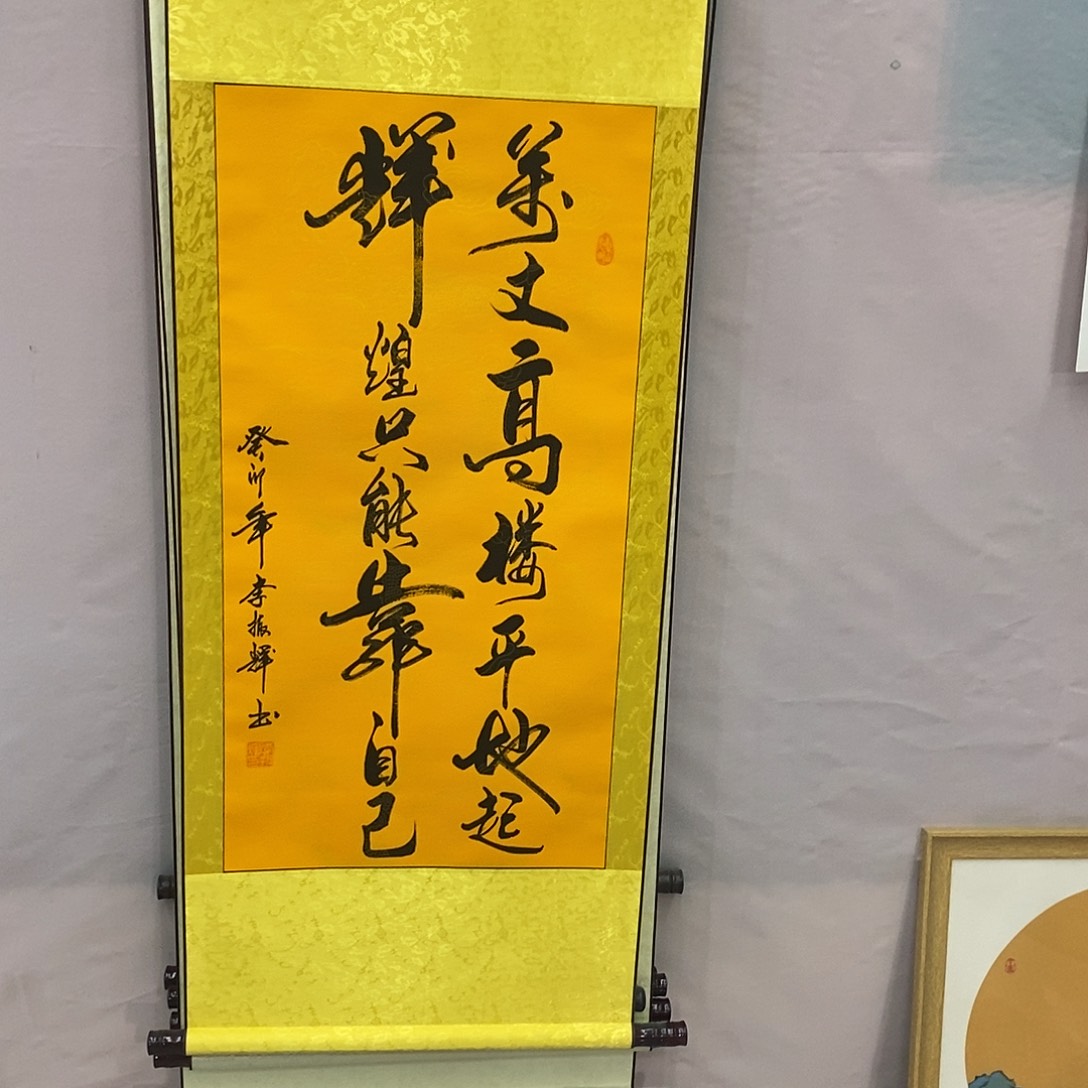 萬丈高楼平地起
輝煌只能靠自己
癸卯年李振輝书